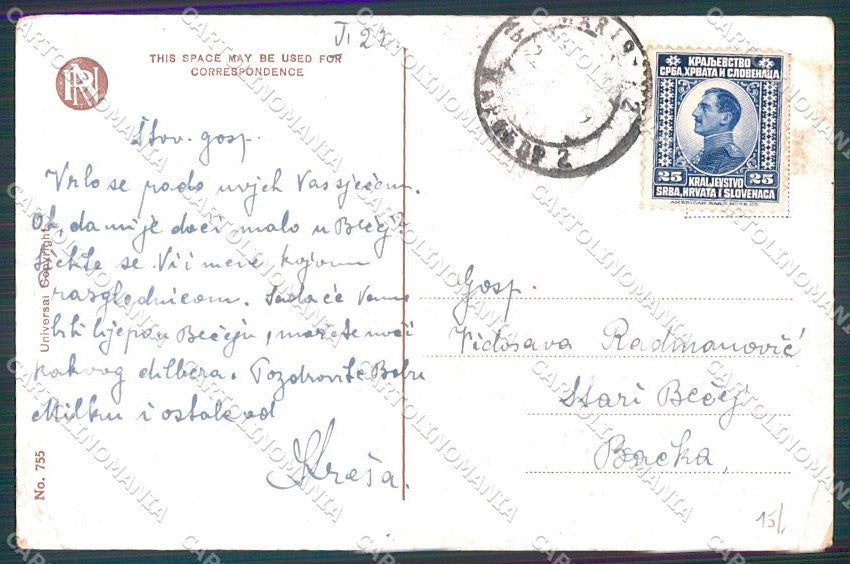 THIS SPACE MAY BE USED FOR
CORRESPONDENCE
Štov. gosp.
Vrlo se rado uvjek Vas sjećam.
Oh, da mi je doći malo u Bečej
se Vi i mene kojom
razglednicom. Sada će Vama
biti lijepo u Bečeju, možete naći
kakvog dilbera. Pozdravite
Milku i ostale od
Kreša.
Universal Copyright
No. 755
КРАЉЕВСТВО
СРБА, ХРВАТА И СЛОВЕНАЦА
25 KRALJEVSTVO 25
SRBA, HRVATA I SLOVENACA
AMERICAN BANK NOTE CO.
Gosp.
Vidosava Radmanović
Stari Bečej
Bačka
15/
CARTOLINOMANIA